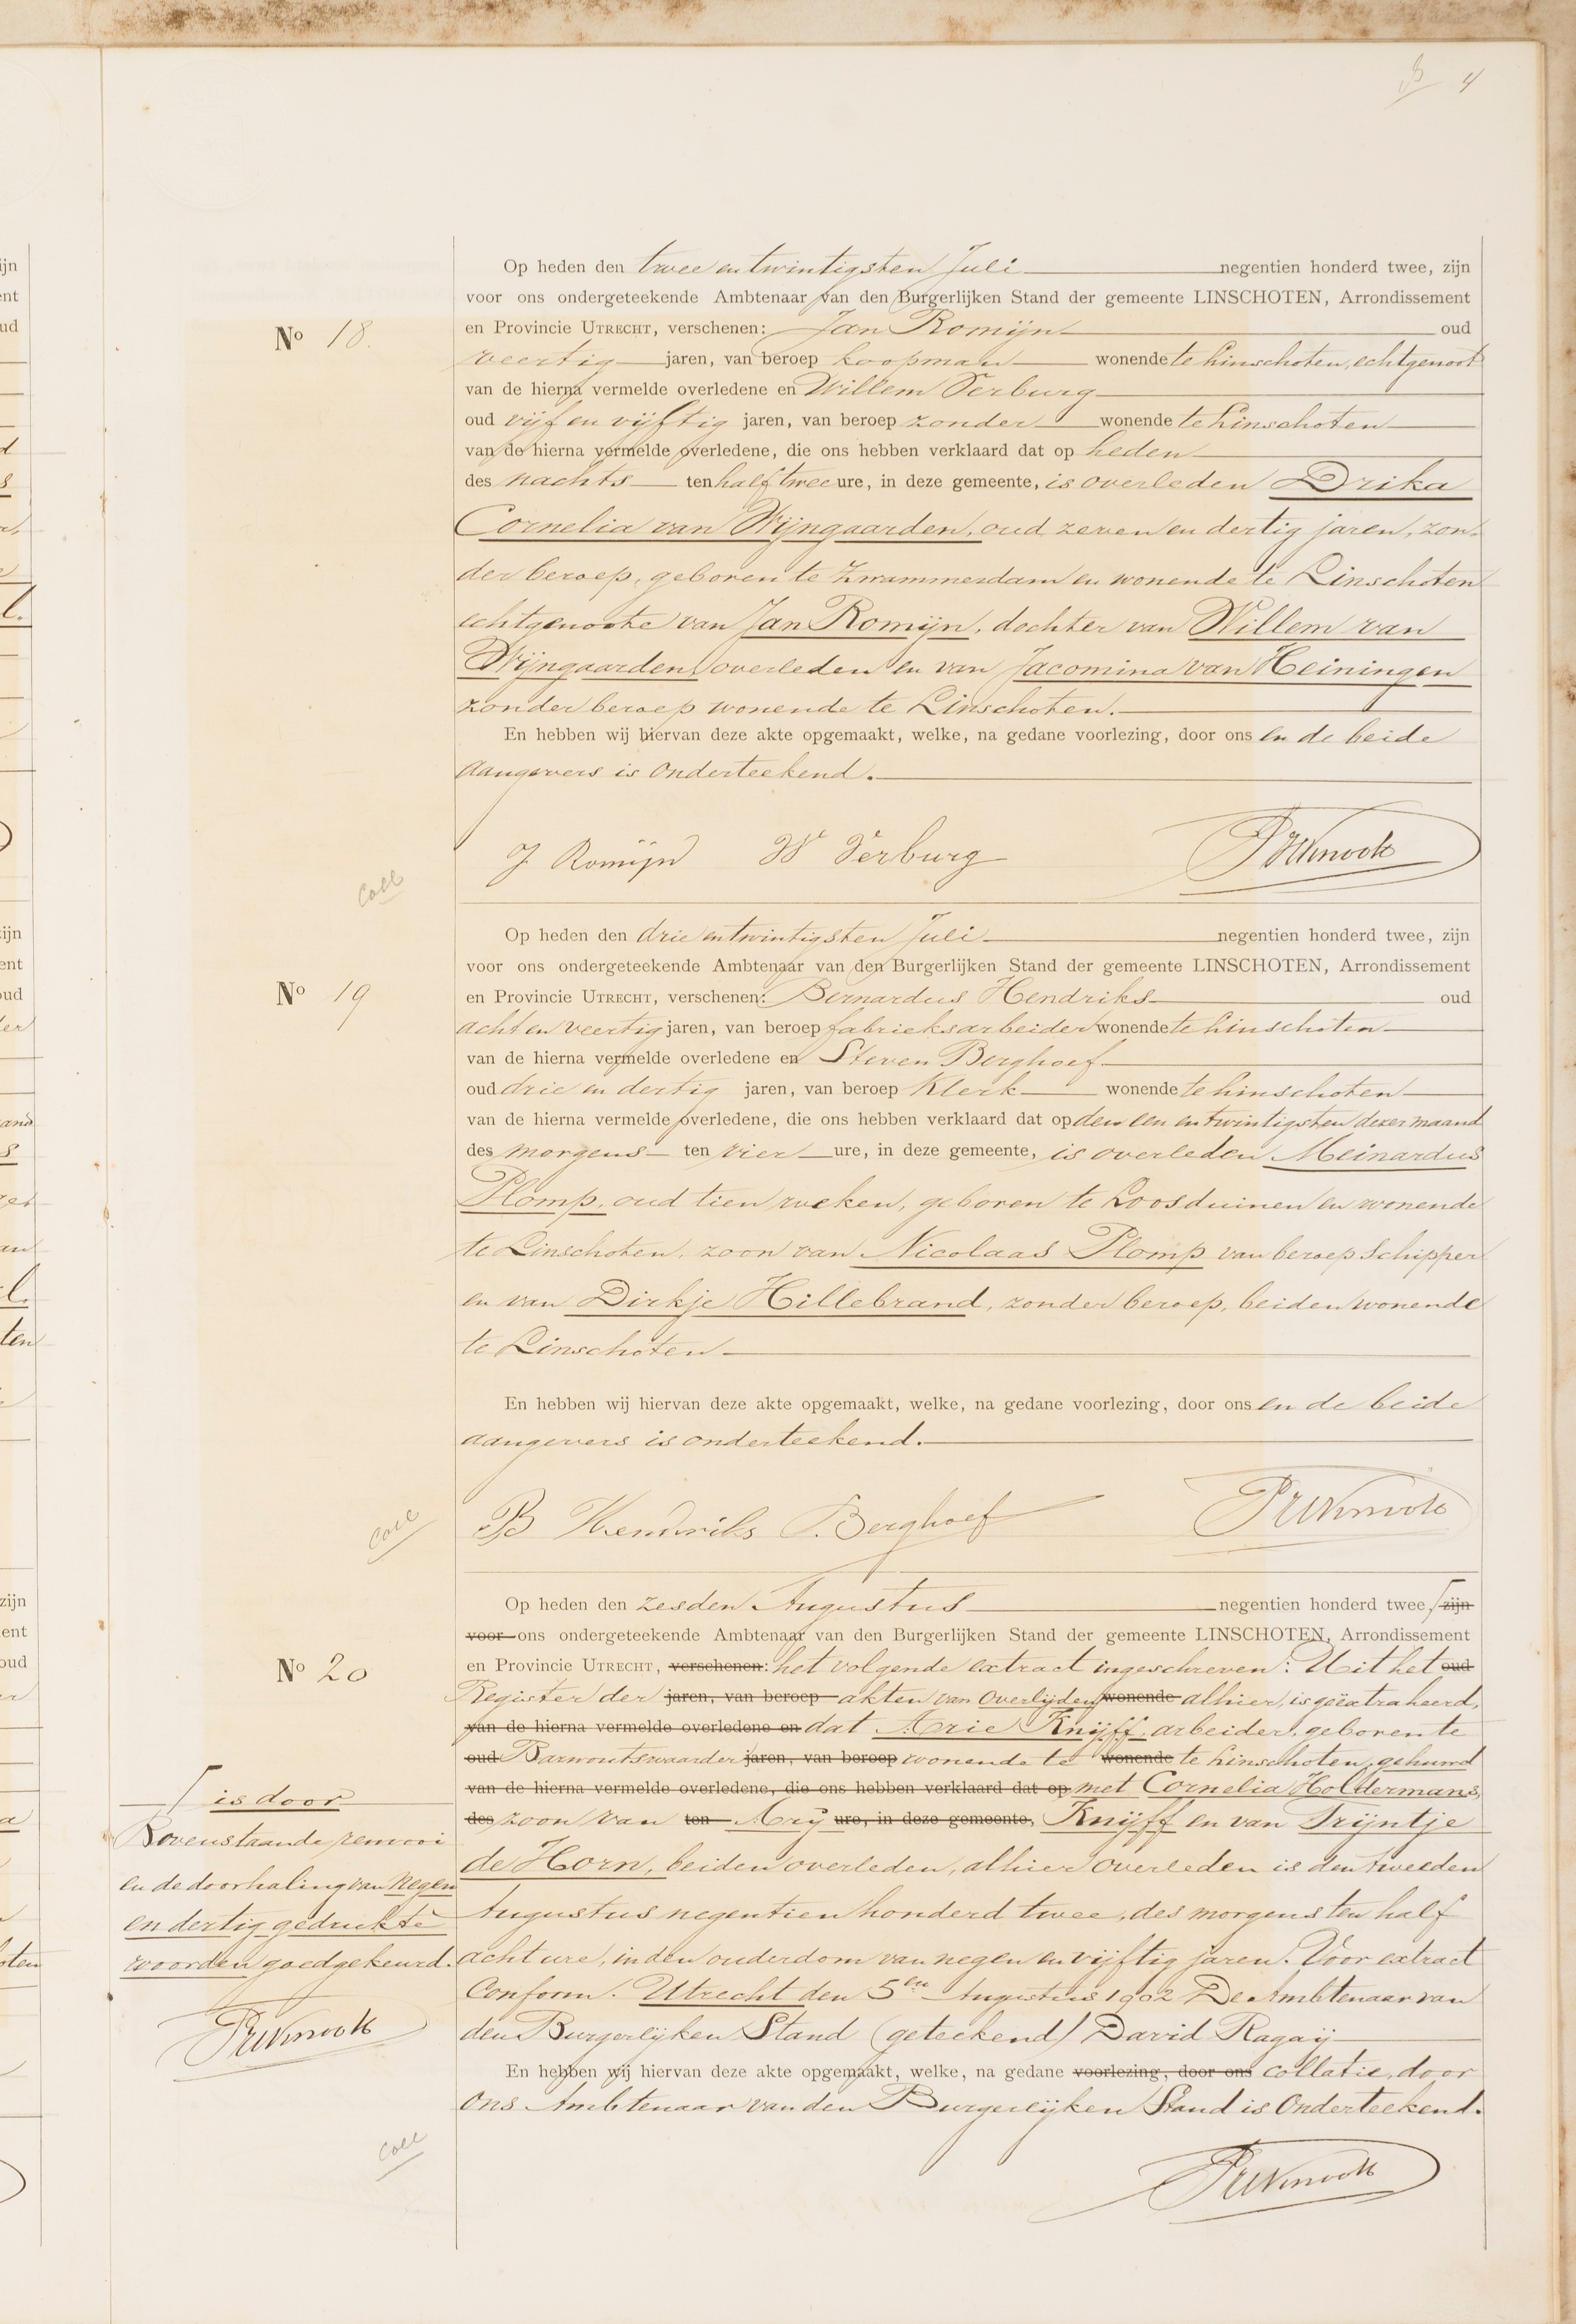 4
Nº 18.
Op heden den twee en twintigsten Juli negentien honderd twee, zijn
voor ons ondergeteekende Ambtenaar van den Burgerlijken Stand der gemeente LINSCHOTEN, Arrondissement
en Provincie UTRECHT, verschenen: Jan Romijn oud
veertig jaren, van beroep koopman wonende te Linschoten, echtgenoot
van de hierna vermelde overledene en Willem Verburg
oud vijf en vijftig jaren, van beroep zonder wonende te Linschoten
van de hierna vermelde overledene, die ons hebben verklaard dat op heden
des nachts ten half twee ure, in deze gemeente, is overleden Drika
Cornelia van Wijngaarden, oud zeven en dertig jaren, zon-
der beroep, geboren te Zwammerdam en wonende te Linschoten
echtgenoote van Jan Romijn, dochter van Willem van
Wijngaarden, overleden en van Jacomina van Heiningen
zonder beroep wonende te Linschoten.
En hebben wij hiervan deze akte opgemaakt, welke, na gedane voorlezing, door ons en de beide
aangevers is onderteekend.
J Romijn W Verburg
Coll
Nº 19
Op heden den drie en twintigsten Juli negentien honderd twee, zijn
voor ons ondergeteekende Ambtenaar van den Burgerlijken Stand der gemeente LINSCHOTEN, Arrondissement
en Provincie UTRECHT, verschenen: Bernardus Hendriks oud
acht en veertig jaren, van beroep fabrieksarbeider wonende te Linschoten
van de hierna vermelde overledene en Steven Berghoef
oud drie en dertig jaren, van beroep Klerk wonende te Linschoten
van de hierna vermelde overledene, die ons hebben verklaard dat op den een en twintigsten dezer maand
des morgens ten vier ure, in deze gemeente, is overleden Meinardus
Plomp, oud tien weken, geboren te Loosduinen en wonende
te Linschoten, zoon van Nicolaas Plomp van beroep Schipper
en van Dirkje Hillebrand, zonder beroep, beiden wonende
te Linschoten
En hebben wij hiervan deze akte opgemaakt, welke, na gedane voorlezing, door ons en de beide
aangevers is onderteekend.
B Hendriks S. Berghoef
Coll
Nº 20
Op heden den zesden Augustus negentien honderd twee, zijn
voor ons ondergeteekende Ambtenaar van den Burgerlijken Stand der gemeente LINSCHOTEN, Arrondissement
en Provincie UTRECHT, verschenen: het volgende extract ingeschreven: Uit het oud
Register der jaren, van beroep akten van Overlijden wonende alhier, is geëxtraheerd,
van de hierna vermelde overledene en dat Arie Knijff, arbeider, geboren te
oud Barwoutswaarder jaren, van beroep wonende te wonende te Linschoten, gehuwd
van de hierna vermelde overledene, die ons hebben verklaard dat op met Cornelia Holdermans,
des zoon van ten Arij ure, in deze gemeente, Knijff en van Trijntje
de Horn, beiden overleden, alhier overleden is den tweeden
Augustus negentien honderd twee, des morgens ten half
acht ure, in den ouderdom van negen en vijftig jaren. Voor extract
Conform. Utrecht den 5en Augustus 1902 De Ambtenaar van
den Burgerlijken Stand (geteekend) David Ragaij
En hebben wij hiervan deze akte opgemaakt, welke, na gedane voorlezing, door ons collatie, door
ons Ambtenaar van den Burgerlijken Stand is onderteekend.
is door
Bovenstaande renvooi
en de doorhaling van negen
en dertig gedrukte
woorden goedgekeurd.
Coll